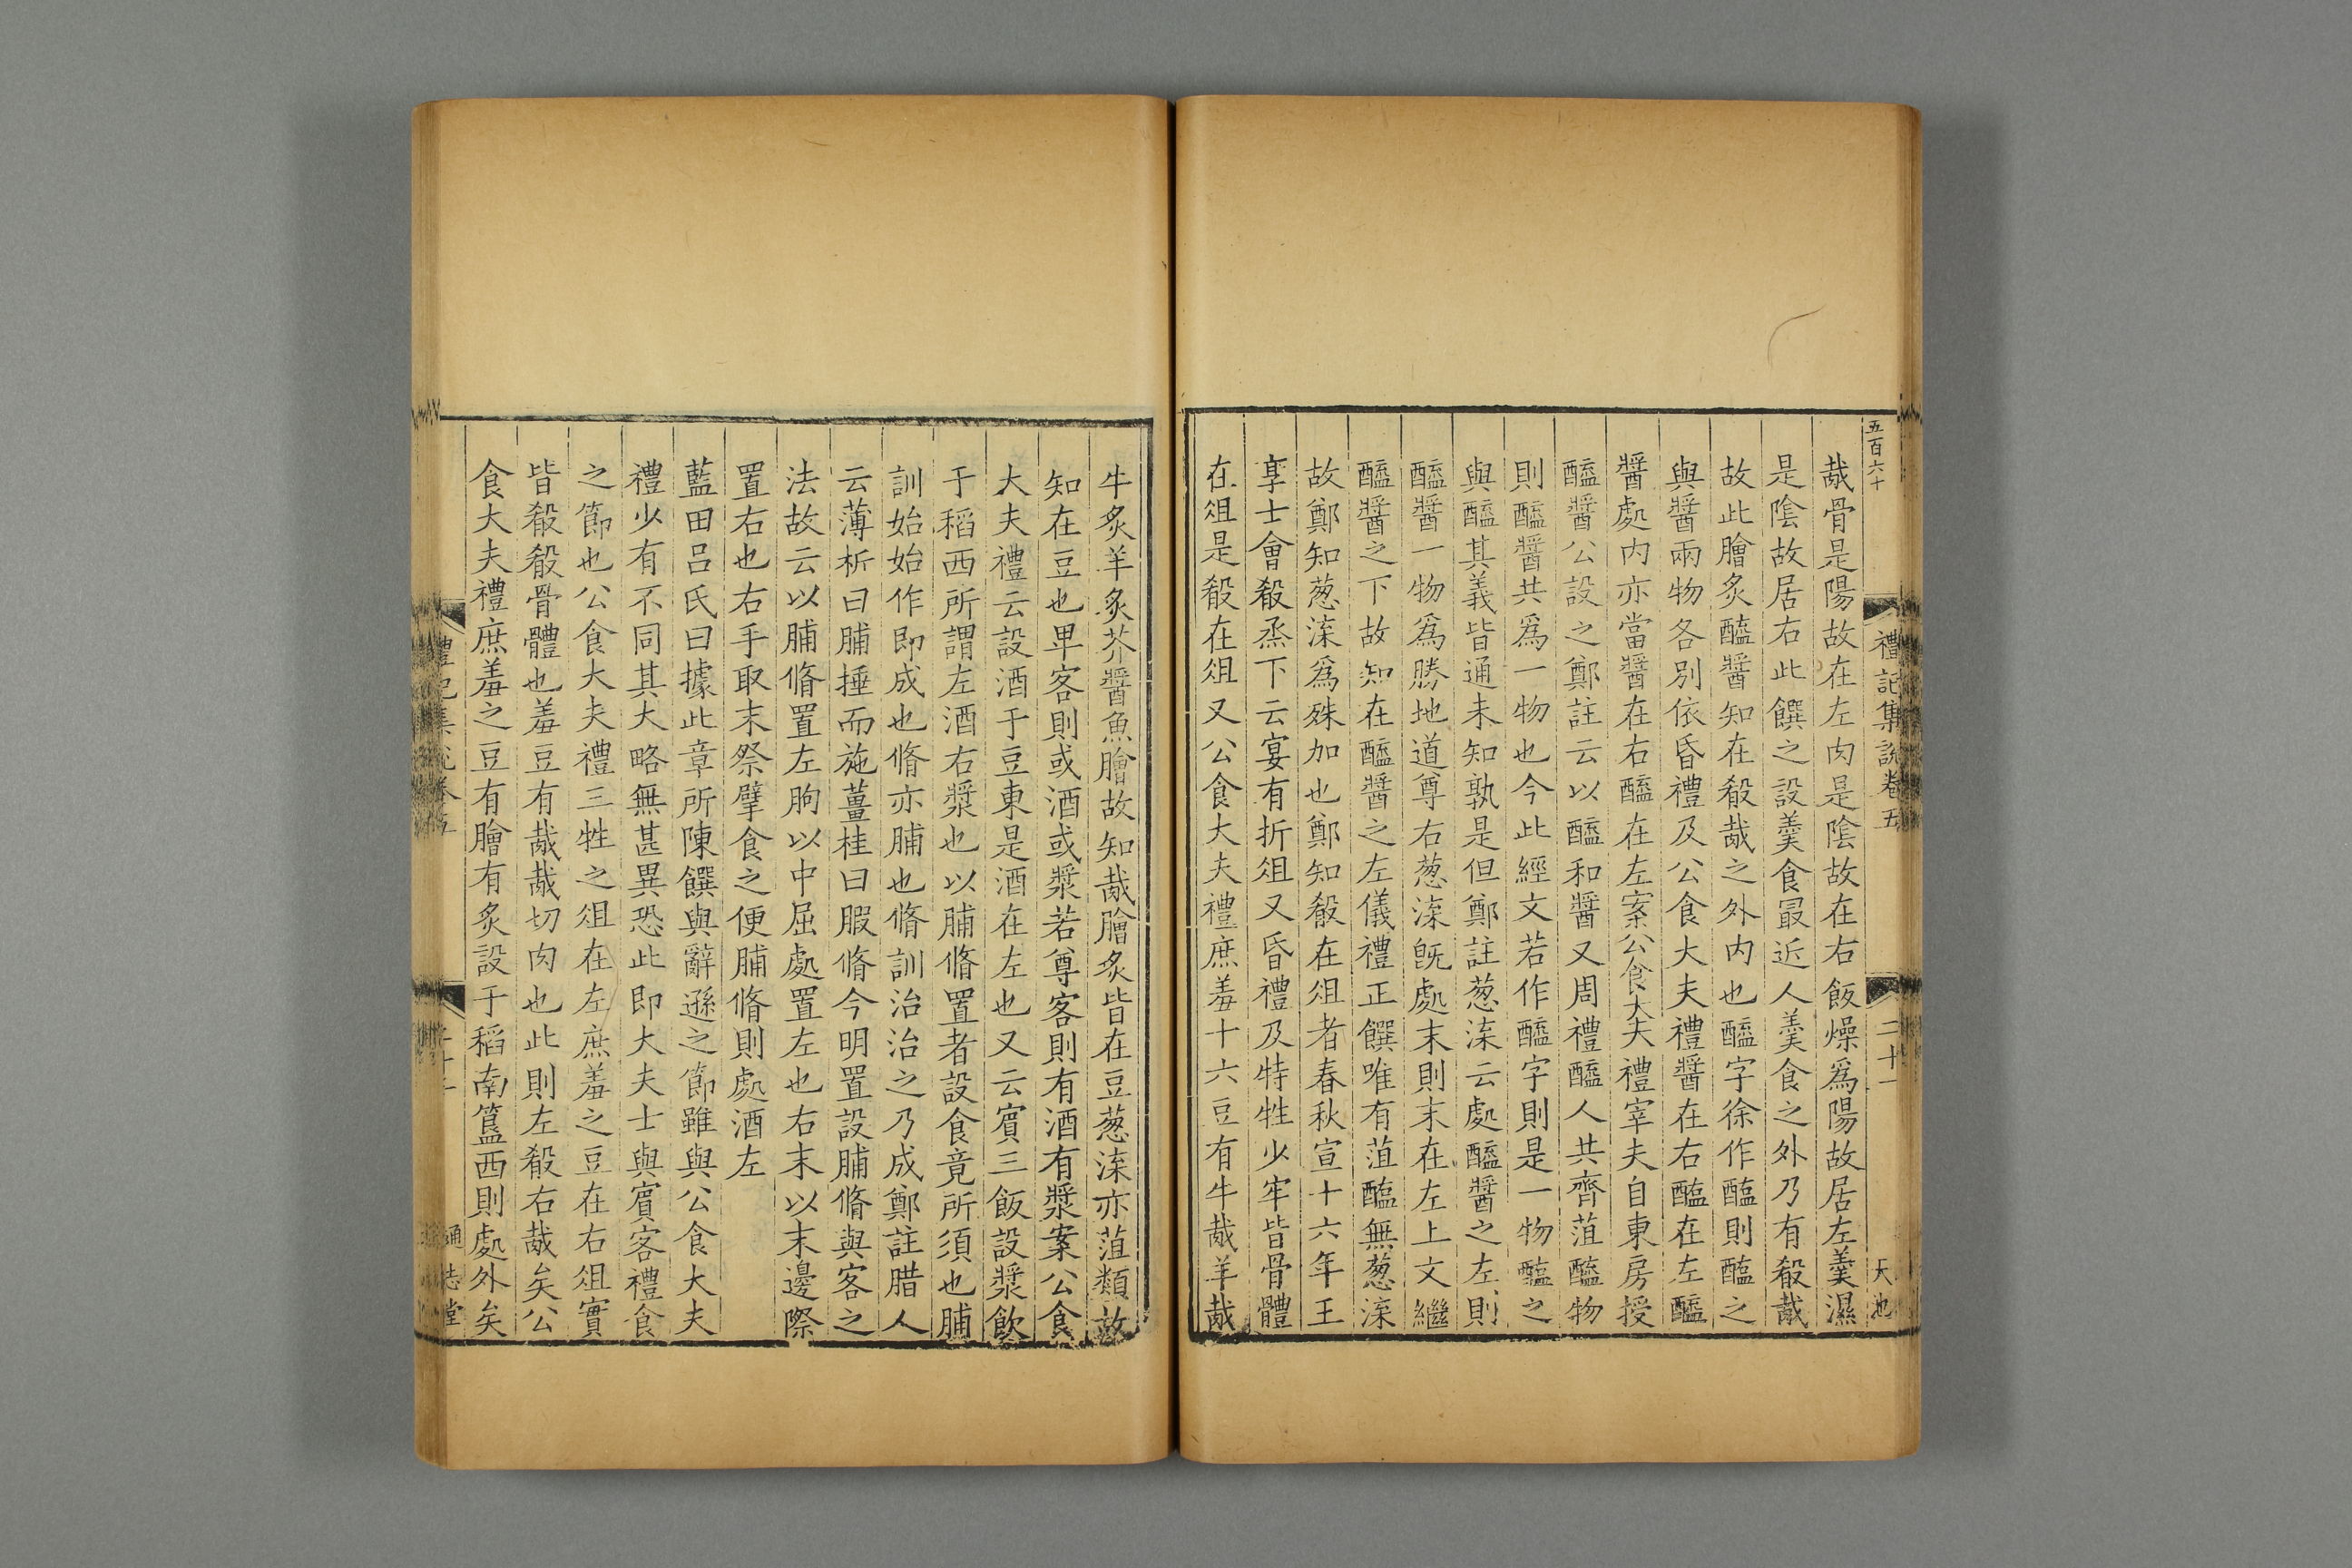 五百六十
禮記集說卷五
二十一
天池
胾骨是陽故在左肉是陰故在右飯燥爲陽故居左羹濕
是陰故居右此饌之設羹食最近人羹食之外乃有殽胾
故此膾炙醯醬知在殽胾之外内也醯字徐作醢則醢之
與醬兩物各別依昏禮及公食大夫禮醬在右醢在左醯
醬處内亦當醬在右醯在左案公食大夫禮宰夫自東房授
醯醬公設之鄭註云以醯和醬又周禮醯人共齊菹醯物
則醯醬共爲一物也今此經文若作醯字則是一物醯之
與醯其義皆通未知孰是但鄭註葱㳿云處醯醬之左則
醯醬一物爲勝地道尊右葱㳿旣處末則末在左上文繼
醯醬之下故知在醯醬之左儀禮正饌唯有菹醢無葱㳿
故鄭知葱㳿爲殊加也鄭知殽在俎者春秋宣十六年王
享士會殽烝下云宴有折俎又昏禮及特牲少牢皆骨體
在俎是殽在俎又公食大夫禮庶羞十六豆有牛胾羊胾
牛炙羊炙芥醬魚膾故知胾膾炙皆在豆葱㳿亦菹類故
知在豆也卑客則或酒或漿若尊客則有酒有漿案公食
大夫禮云設酒于豆東是酒在左也又云賓三飯設漿飲
于稻西所謂左酒右漿也以脯脩置者設食竟所須也脯
訓始始作即成也脩亦脯也脩訓治治之乃成鄭註腊人
云薄析曰脯捶而施薑桂曰腶脩今明置設脯脩與客之
法故云以脯脩置左朐以中屈處置左也右末以末邊際
置右也右手取末祭擘食之便脯脩則處酒左
藍田呂氏曰據此章所陳饌與辭遜之節雖與公食大夫
禮少有不同其大略無甚異恐此即大夫士與賓客禮食
之節也公食大夫禮三牲之俎在左庶羞之豆在右俎實
皆殽殽骨體也羞豆有胾胾切肉也此則左殽右胾矣公
食大夫禮庶羞之豆有膾有炙設于稻南簋西則處外矣
通志堂